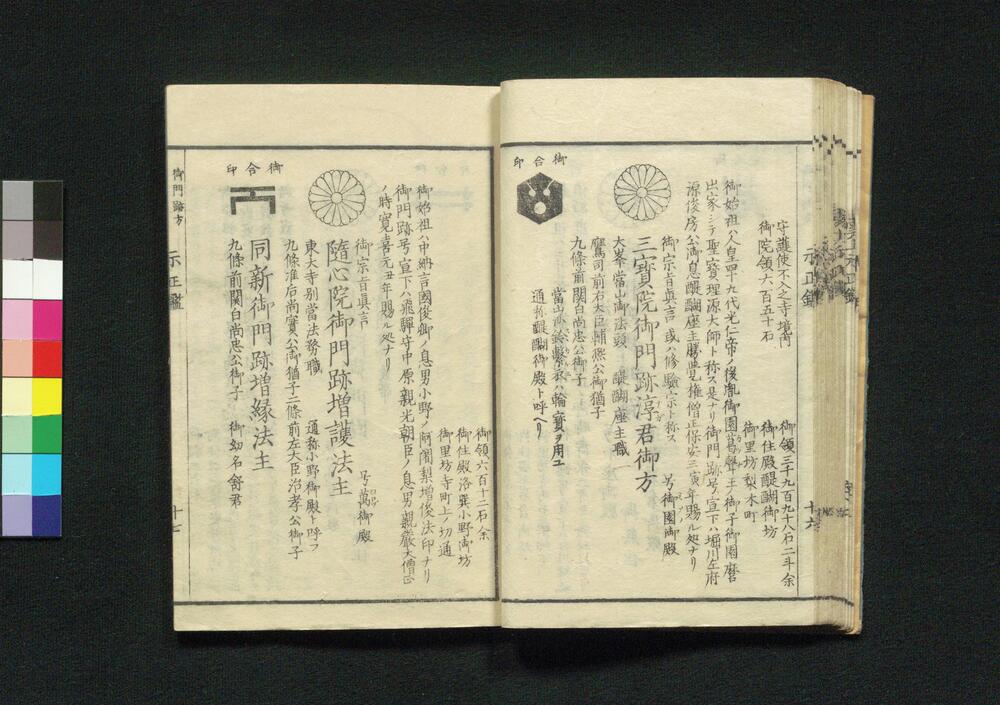 守護使不入之寺境内
御院領六百五十石
御領三千九百九十八石二斗余
御住殿醍醐御坊
御里坊梨木町
御始祖ハ人皇四十九代光仁帝ノ後胤御園葛聲王ノ御子御園麿
出家シテ聖寳理源大師ト称ス是ナリ御門跡号宣下ハ堀川左府
源俊房公御息醍醐座主勝覺権僧正保安三寅年賜ル処ナリ
御宗旨眞言 或ハ修驗宗ト称ス
号御園御殿
三寳院御門跡淳君御方
大峯當山御法頭 醍醐座主職
鷹司前右大臣輔凞公御猶子
九條前関白尚忠公御子
當山派鈴繫衣ハ輪寳ヲ用ユ
通称醍醐御殿ト呼ヘリ
御合印
示正鑑
十六
御領六百十二石余
御住殿洛巽小野御坊
御里坊寺町上ノ切通
御始祖ハ中納言國俊卿ノ息男小野ノ阿闍梨増俊法印ナリ
御門跡号宣下ハ飛驒守中原親光朝臣ノ息男親嚴大僧正
ノ時寛喜元丑年賜ル処ナリ
御宗旨眞言
号萬御殿
隨心院御門跡増護法主
東大寺別當法務職
通称小野御殿ト呼フ
九條准后尚實公御猶子二條前左大臣治孝公御子
同新御門跡増縁法主
九條前関白尚忠公御子 御幼名舒君
御合印
御門跡方
示正鑑
十七